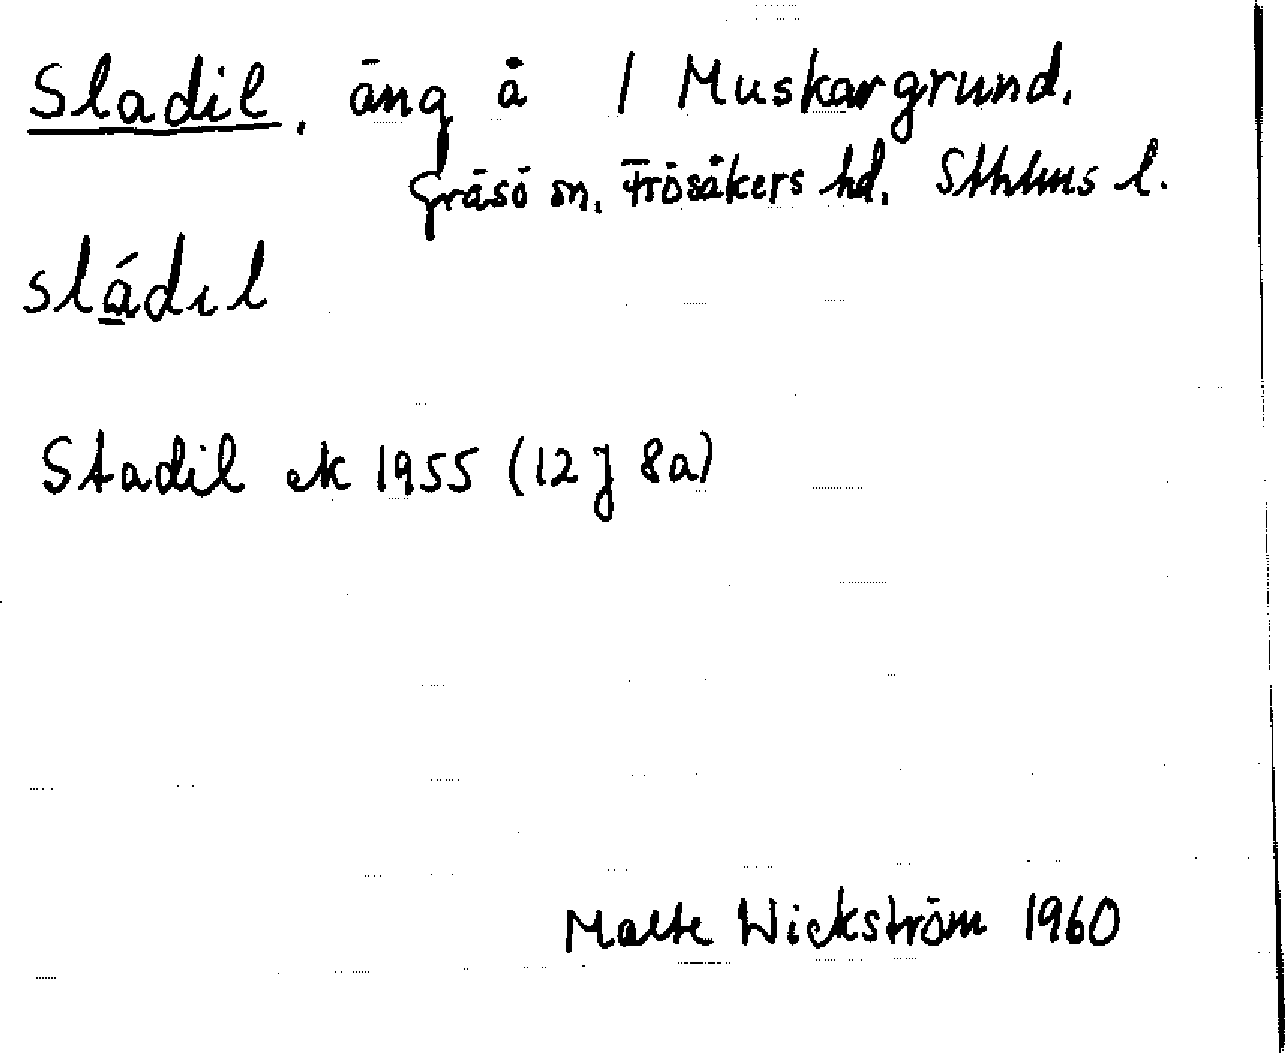 Sladil, äng å 1 Muskargrund.
Gräsö sn, Frösåkers hd, Sthlms l.
sládıl
Stadil ek 1955 (12 J 8a)
Malte Wickström 1960